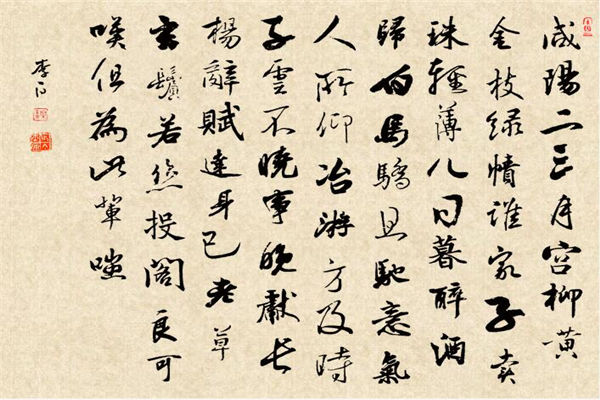 咸陽二三月宮柳黃
金枝綠幘誰家子賣
珠輕薄儿日暮醉酒
歸白馬驕且馳意氣
人所仰冶游方及時
子雲不曉事晚獻長
楊辭賦達身已老草
玄鬢若絲投閣良可
嘆但為此輩嗤
李白